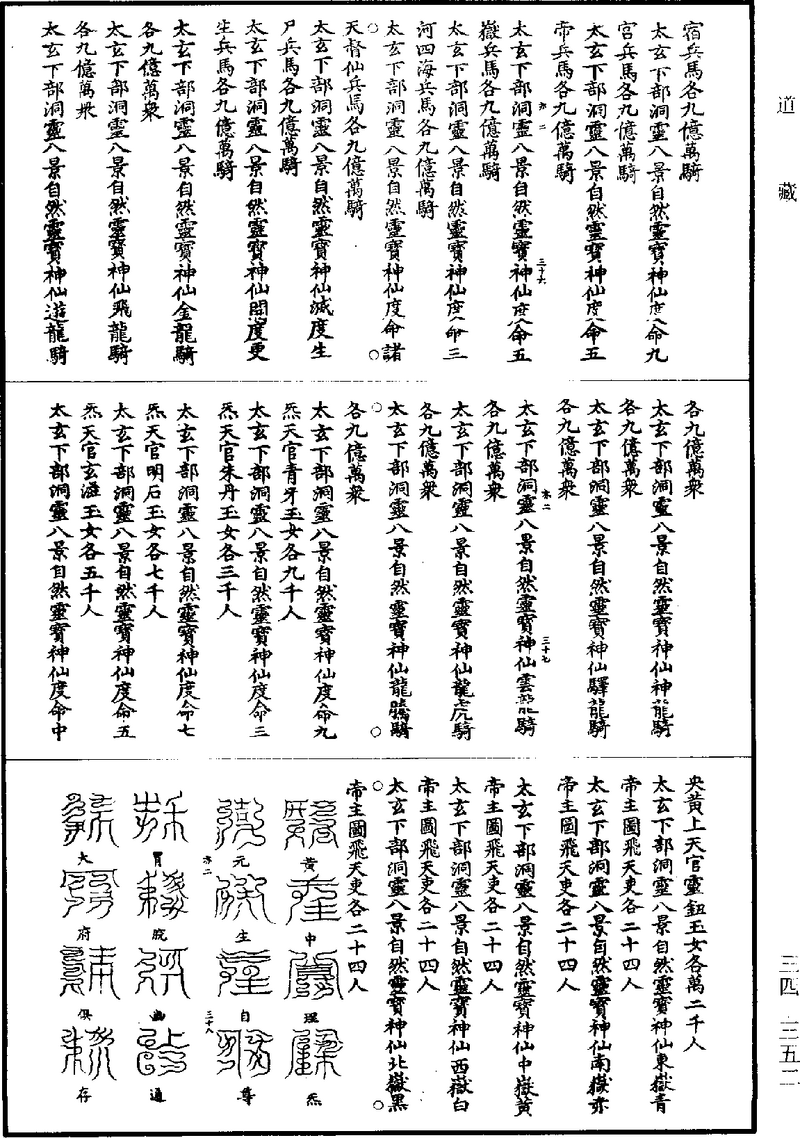 道藏
宿兵馬各九億萬騎
太玄下部洞靈八景自然靈寶神仙度命九
宮兵馬各九億萬騎
太玄下部洞靈八景自然靈寶神仙度命五
帝兵馬各九億萬騎
太玄下部洞靈八景自然靈寶神仙度命五
嶽兵馬各九億萬騎
太玄下部洞靈八景自然靈寶神仙度命三
河四海兵馬各九億萬騎
太玄下部洞靈八景自然靈寶神仙度命諸
天督仙兵馬各九億萬騎
太玄下部洞靈八景自然靈寶神仙滅度生
尸兵馬各九億萬騎
太玄下部洞靈八景自然靈寶神仙開度更
生兵馬各九億萬騎
太玄下部洞靈八景自然靈寶神仙金龍騎
各九億萬衆
太玄下部洞靈八景自然靈寶神仙飛龍騎
各九億萬衆
太玄下部洞靈八景自然靈寶神仙遊龍騎
各九億萬衆
太玄下部洞靈八景自然靈寶神仙神龍騎
各九億萬衆
太玄下部洞靈八景自然靈寶神仙驛龍騎
各九億萬衆
太玄下部洞靈八景自然靈寶神仙雲龍騎
各九億萬衆
太玄下部洞靈八景自然靈寶神仙龍虎騎
各九億萬衆
太玄下部洞靈八景自然靈寶神仙龍騰騎
各九億萬衆
太玄下部洞靈八景自然靈寶神仙度命九
炁天官青牙玉女各九千人
太玄下部洞靈八景自然靈寶神仙度命三
炁天官朱丹玉女各三千人
太玄下部洞靈八景自然靈寶神仙度命七
炁天官明石玉女各七千人
太玄下部洞靈八景自然靈寶神仙度命五
炁天官玄滋玉女各五千人
太玄下部洞靈八景自然靈寶神仙度命中
央黃上天官靈鈕玉女各萬二千人
太玄下部洞靈八景自然靈寶神仙東嶽青
帝主圖飛天吏各二十四人
太玄下部洞靈八景自然靈寶神仙南嶽赤
帝主圖飛天吏各二十四人
太玄下部洞靈八景自然靈寶神仙中嶽黃
帝主圖飛天吏各二十四人
太玄下部洞靈八景自然靈寶神仙西嶽白
帝主圖飛天吏各二十四人
太玄下部洞靈八景自然靈寶神仙北嶽黑
帝主圖飛天吏各二十四人
黃中理炁
元生自尊
胃脘幽通
大府俱存
三四 三五二